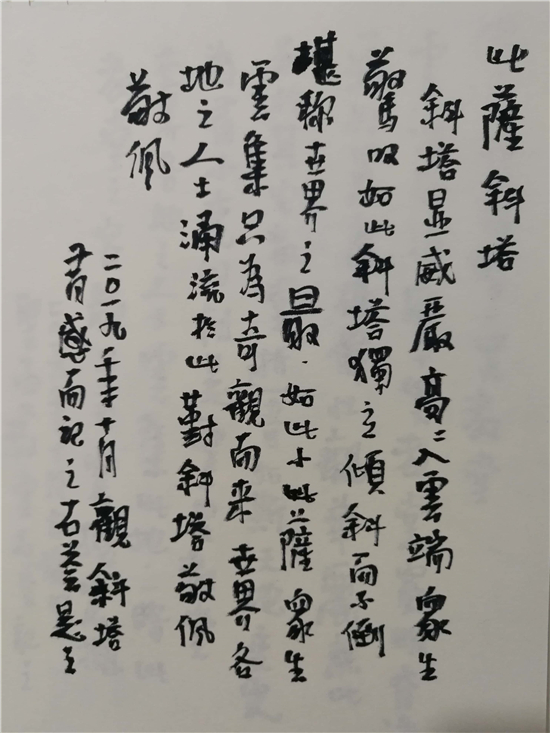 此薩斜塔
斜塔显威嚴高〻入雲端眾生
驚叹如此斜塔獨立傾斜而不倒
堪称世界之最.如此小此薩眾生
雲集只為奇觀而来世界各
地之人士涌流於此對斜塔敬佩
敬佩
二〇一九年十月觀斜塔
感而記之